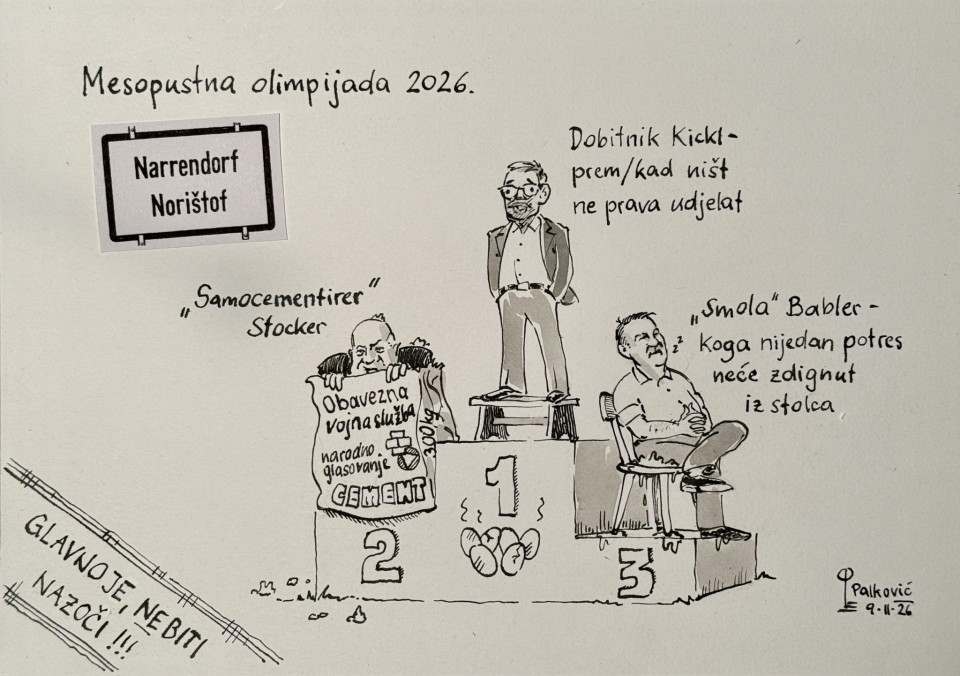 Mesopustna olimpijada 2026.
Narrendorf
Norištof
Dobitnik Kickl-
prem/kad ništ
ne prava udjelat
„Samocementirer“
Stocker
„Smola“ Babler -
koga nijedan potres
neće zdignut
iz stolca
zz
Obavezna
vojna služba
narodno
glasovanje
300kg
CEMENT
1
2
3
GLAVNO JE, NE BITI
NAZOČI !!!
Palković
9-II-26